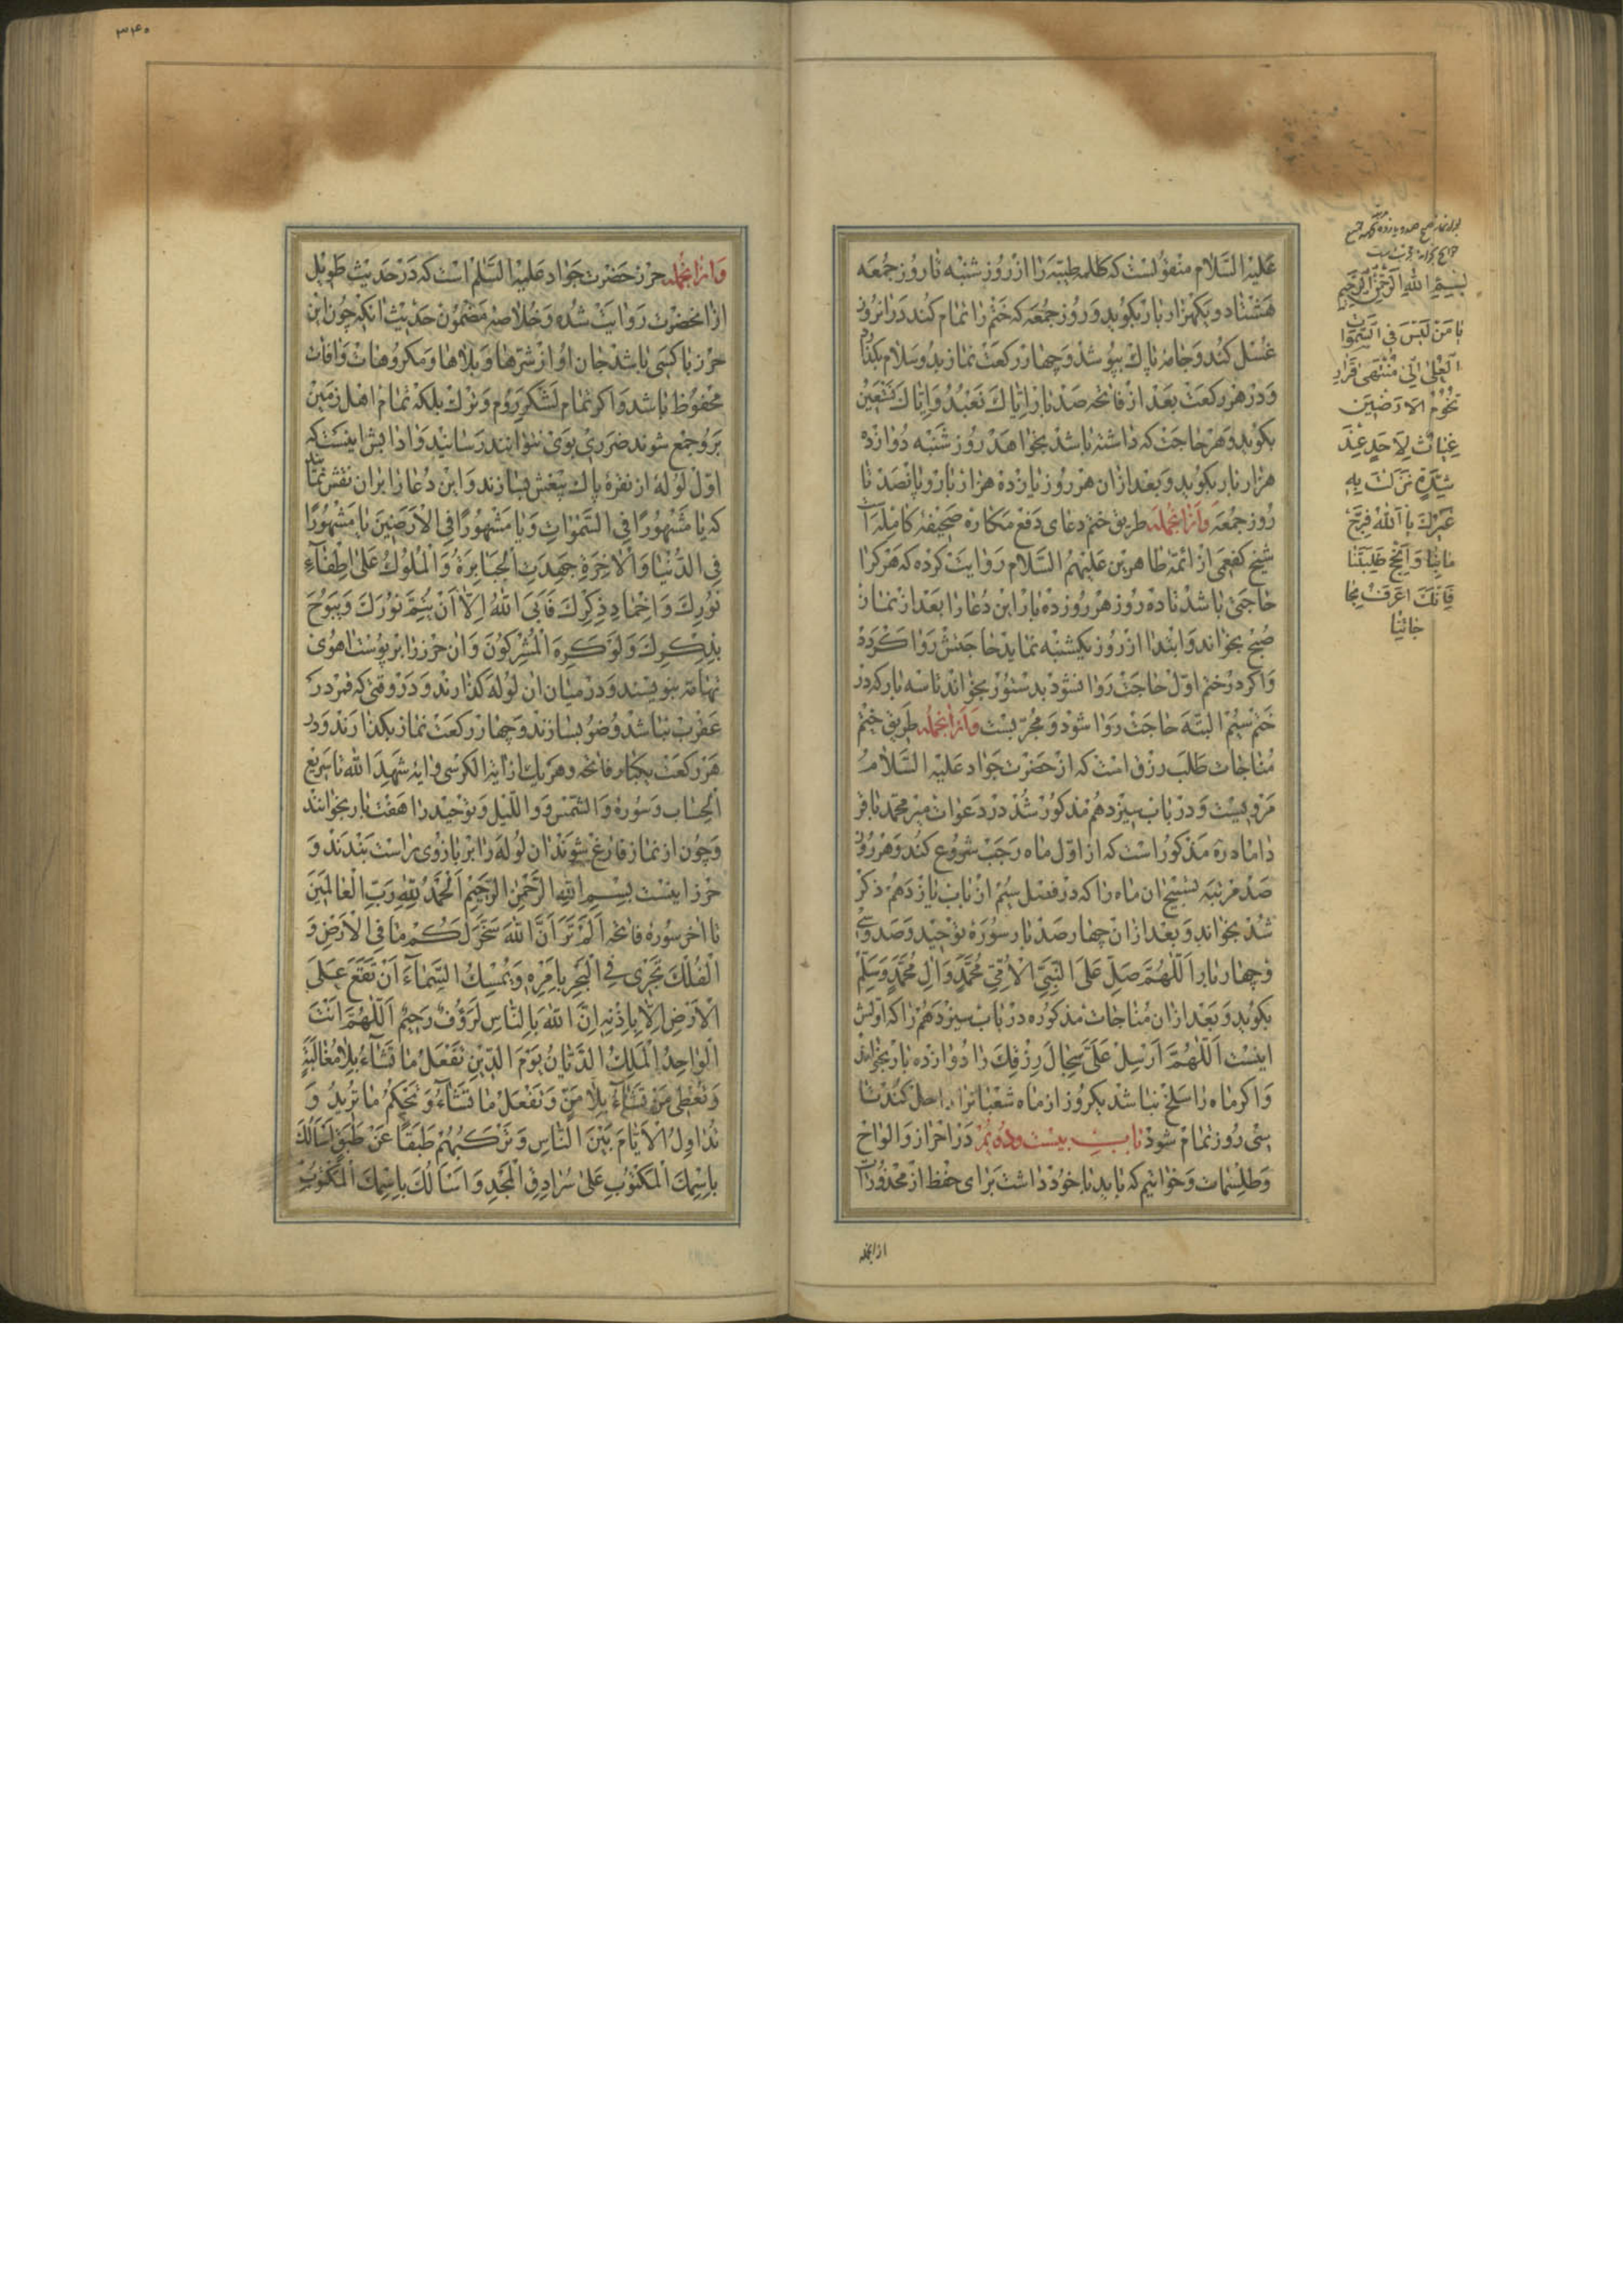 علیه السلام منقولست که کلمه طیبه را از روز شنبه تا روز جمعه
هشتاد و یکهزار بار بکوید و روز جمعه که ختم را تمام کند در انروز
غسل کند و جامه پاک بپوشد و چهار رکعت نماز بدو سلام بکذارد
و در هر رکعت بعد از فاتحه صد بار ایاک نعبد و ایاک نستعین
بکوید و هر حاجت که داشته باشد بخواهد روز شنبه دوازده
هزار بار بکوید و بعد از ان هر روز یازده هزار بار و پانصد تا
روز جمعه وازانجمله طریق ختم دعای دفع مکاره صحیفه کامله است
شیخ کفعمی از ائمه طاهرین علیهم السلام روایت کرده که هر کرا
حاجتی باشد تا ده روز هر روز ده بار این دعا را بعد از نماز
صبح بخواند و ابتدا از روز یکشنبه نماید حاجتش روا کردد
و اکر در ختم اول حاجت روا نشود بدستور بخواند تا سه بار که در
ختم سیم البته حاجت روا شود و مجربست وازانجمله طریق ختم
مناجات طلب رزق است که از حضرت جواد علیه السلام
مرویست و در باب سیزدهم مذکور شد در دعوات میر محمد باقر
داماد ره مذکور است که از اول ماه رجب شروع کند و هر روز
صد مرتبه تسبیح ان ماه را که در فصل سیم از باب یازدهم ذکر
شد بخواند و بعد از ان چهار صد بار سوره توحید و صد و سی
و چهار بار اللهم صل علی النبی الامی محمد وال محمد وسلم
بکوید و بعد از ان مناجات مذکوره در باب سیزدهم را که اولش
اینست اللهم ارسل علی سجال رزقک را دوازده بار بخواند
و اکر ماه را سلخ نباشد یکروز از ماه شعبانرا داخل کند تا
سی روز تمام شود باب بیست و دوم در احراز و الواح
و طلسمات و خواتیم که باید با خود داشت برای حفظ از محذورات
ازانجمله
بسم الله الرحمن الرحیم
یا من لیس فی السموات
العلی الی منتهی قرار
تخوم الارضین
غیاث لاحد عند
شدة نزلت به
غیرک یا الله فرج
ما بنا وانجح طلبتنا
فانک اعرف بحا
جاتنا
۳۴۰
وازانجمله حرز حضرت جواد علیه السلم است که در حدیث طویل
از انحضرت روایت شده و خلاصه مضمون حدیث انکه چون این
حرز با کسی باشد جان او از شرها و بلاها و مکروهات و افات
محفوظ باشد و اکر تمام لشکر روم و ترک بلکه تمام اهل زمین
برو جمع شوند ضرری بوی نتوانند رسانید و ادابش اینست که
اول لوله از نقره پاک بیغش بسازند و این دعا را بران نقش نمایند
که یا مشهورا فی السموات ویا مشهورا فی الارضین یا مشهورا
فی الدنیا والاخرة جهدت الجبابرة والملوک علی اطفآء
نورک واخماد ذکرک فابی الله الا ان یتم نورک ویبوح
بذکرک ولو کره المشرکون و ان حرز را بر پوست اهوی
تهامه بنویسند و در میان ان لوله کذارند و در وقتی که قمر در
عقرب نباشد وضو بسازند و چهار رکعت نماز بکذارند و در
هر رکعت یکبار فاتحه و هر یک از ایه الکرسی و ایه شهد الله تا سریع
الحساب و سوره والشمس و واللیل و توحید را هفت بار بخوانند
و چون از نماز فارغ شوند ان لوله را بر بازوی راست بندند و
حرز اینست بسم الله الرحمن الرحیم الحمد لله رب العالمین
تا اخر سوره فاتحه الم تر ان الله سخر لکم ما فی الارض و
الفلک تجری فی البحر بامره ویمسک السمآء ان تقع علی
الارض الا باذنه ان الله بالناس لرؤف رحیم اللهم انت
الواحد الملک الدیان یوم الدین تفعل ما تشآء بلا مغالبة
وتعطی من تشآء بلا من وتفعل ما تشآء وتحکم ما ترید و
تداول الایام بین الناس وترکبهم طبقا عن طبق اسالک
باسمک المکتوب علی سرادق المجد واسالک باسمک المکتوب